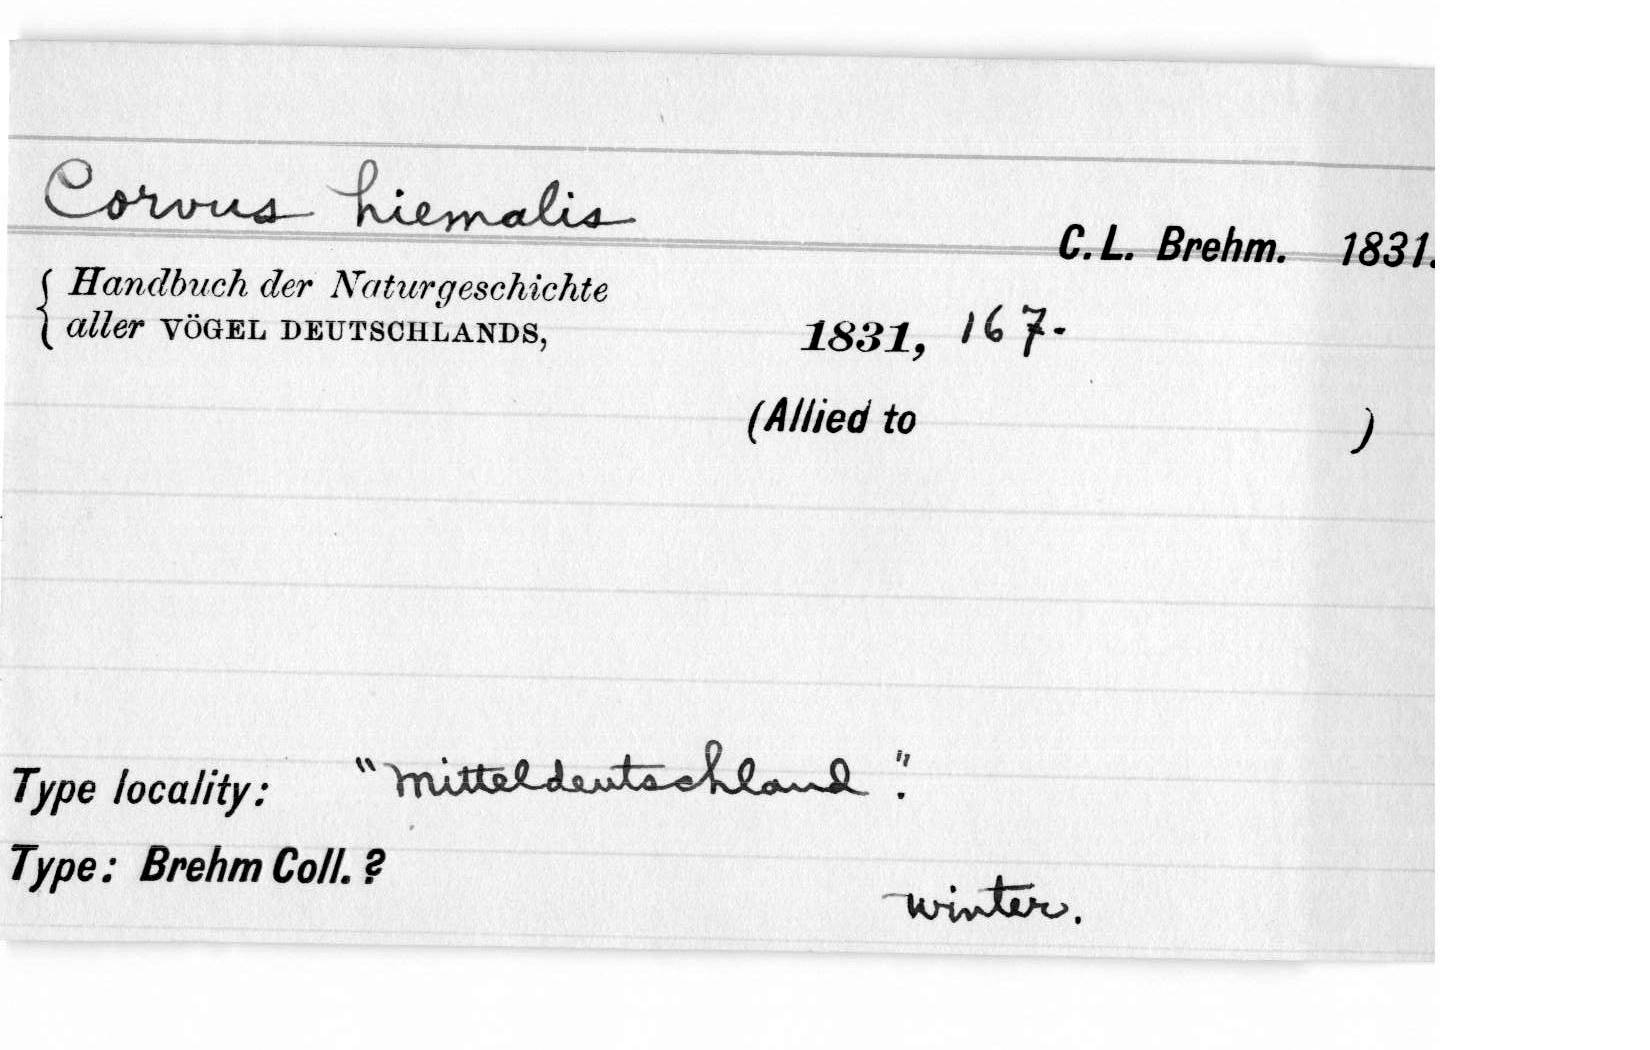 Corvus hiemalis
C.L. Brehm. 1831.
Handbuch der Naturgeschichte
aller VÖGEL DEUTSCHLANDS, 1831, 167.
(Allied to )
Type locality: "Mitteldeutschland".
Type: Brehm Coll. ?
winter.